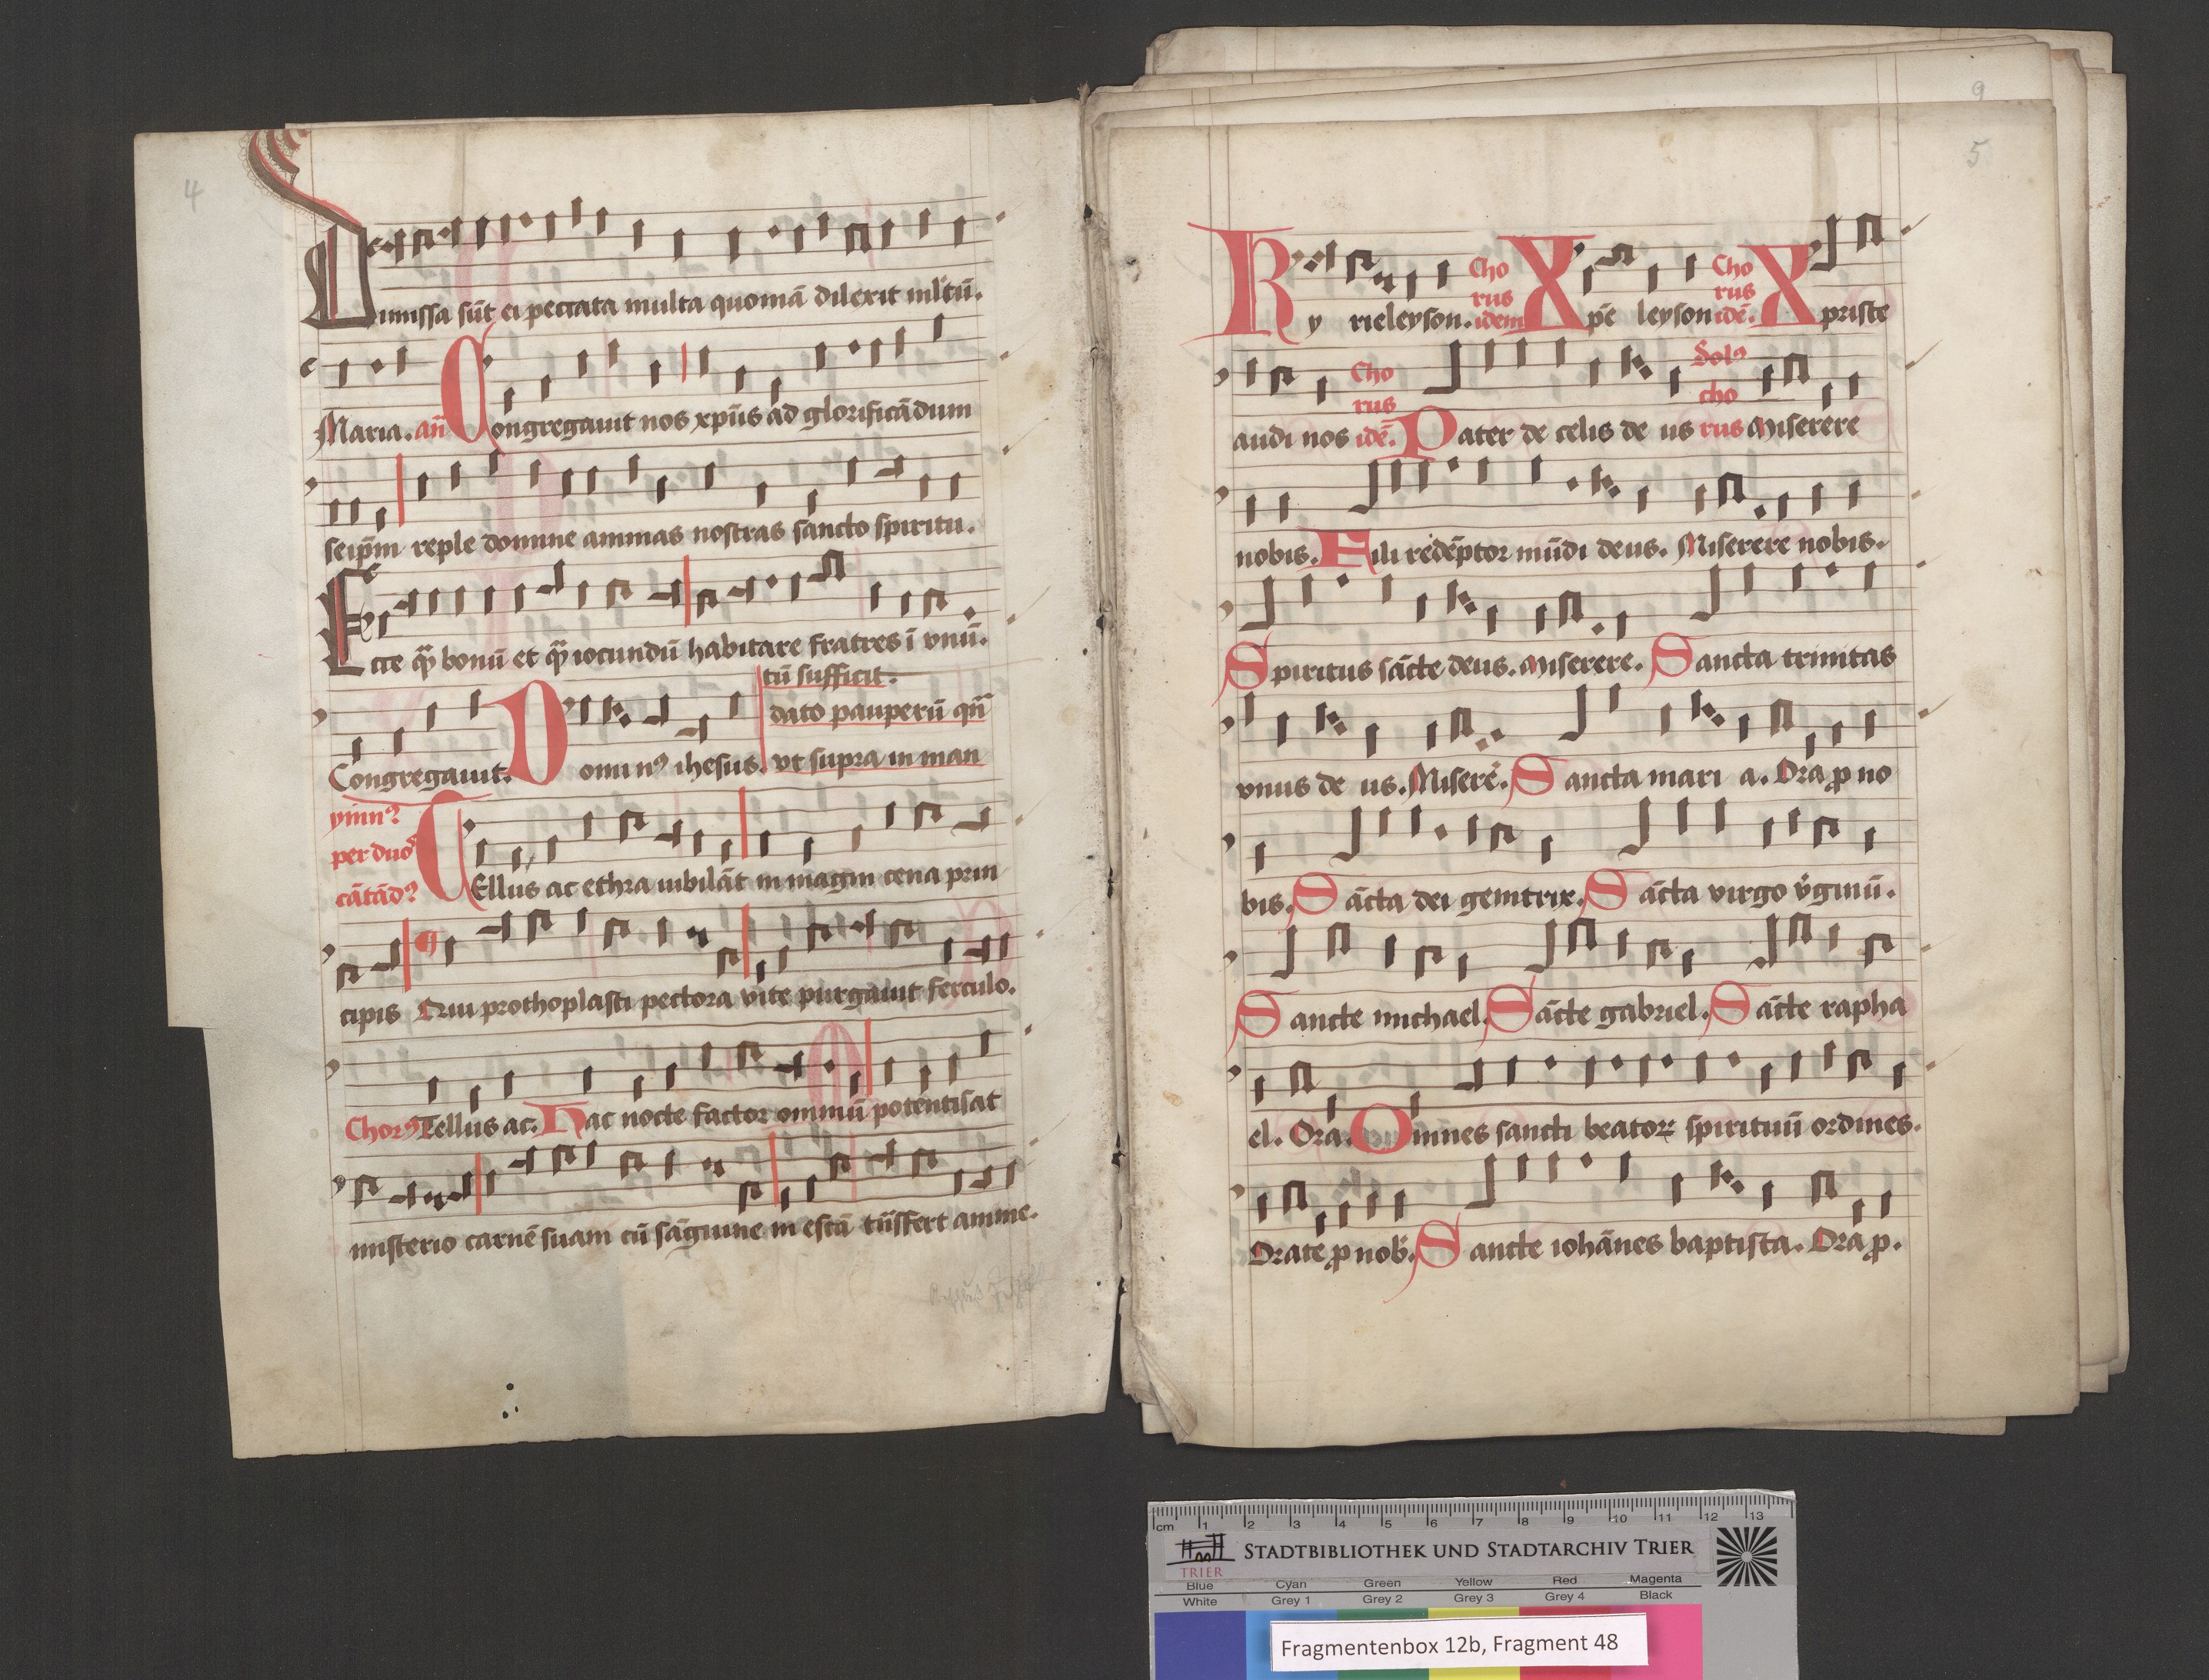 4
Dimissa sūt ei peccata multa quoniā dilexit ml̄tū.
Maria. añ Congregauit nos xp̄us ad glorificādum
seip̄m reple domine animas nostras sancto spiritu.
Ecce q̄ bonū et q̄ iocundū habitare fratres ī vnū.
tū sufficit.
dato pauperū qn̄
Congregauit. Domin⁹ ihesus. vt supra in man
ymn⁹
per duos
cātād⁹
TEllus ac ethra iubilāt in magni cena prin
cipis Que prothoplasti pectora vite purgauit ferculo.
Chor⁹ Tellus ac. Hac nocte factor omniū potentis at
misterio carnē suam cū sāguine in escā trāsfert anime.
9
5
Ky rieleyson. Cho rus idem Xp̄e leyson Cho rus idē. Xpriste
audi nos Cho rus idē. Pater de celis de us Sol⁹ cho rus Miserere
nobis. Fili redēptor mūdi deus. Miserere nobis.
Spiritus sācte deus. Miserere. Sancta trinitas
vnus de us. Misere. Sancta mari a. Ora ꝓ no
bis. Sācta dei genitrix. Sācta virgo v̄ginū.
Sancte michael. Sācte gabriel. Sācte rapha
el. Ora. Omnes sancti beatoꝝ spirituū ordines.
Orate ꝓ nob. Sancte iohānes baptista. Ora ꝓ.
cm 1 2 3 4 5 6 7 8 9 10 11 12 13
TRIER
STADTBIBLIOTHEK UND STADTARCHIV TRIER
Blue Cyan Green Yellow Red Magenta
White Grey 1 Grey 2 Grey 3 Grey 4 Black
Fragmentenbox 12b, Fragment 48